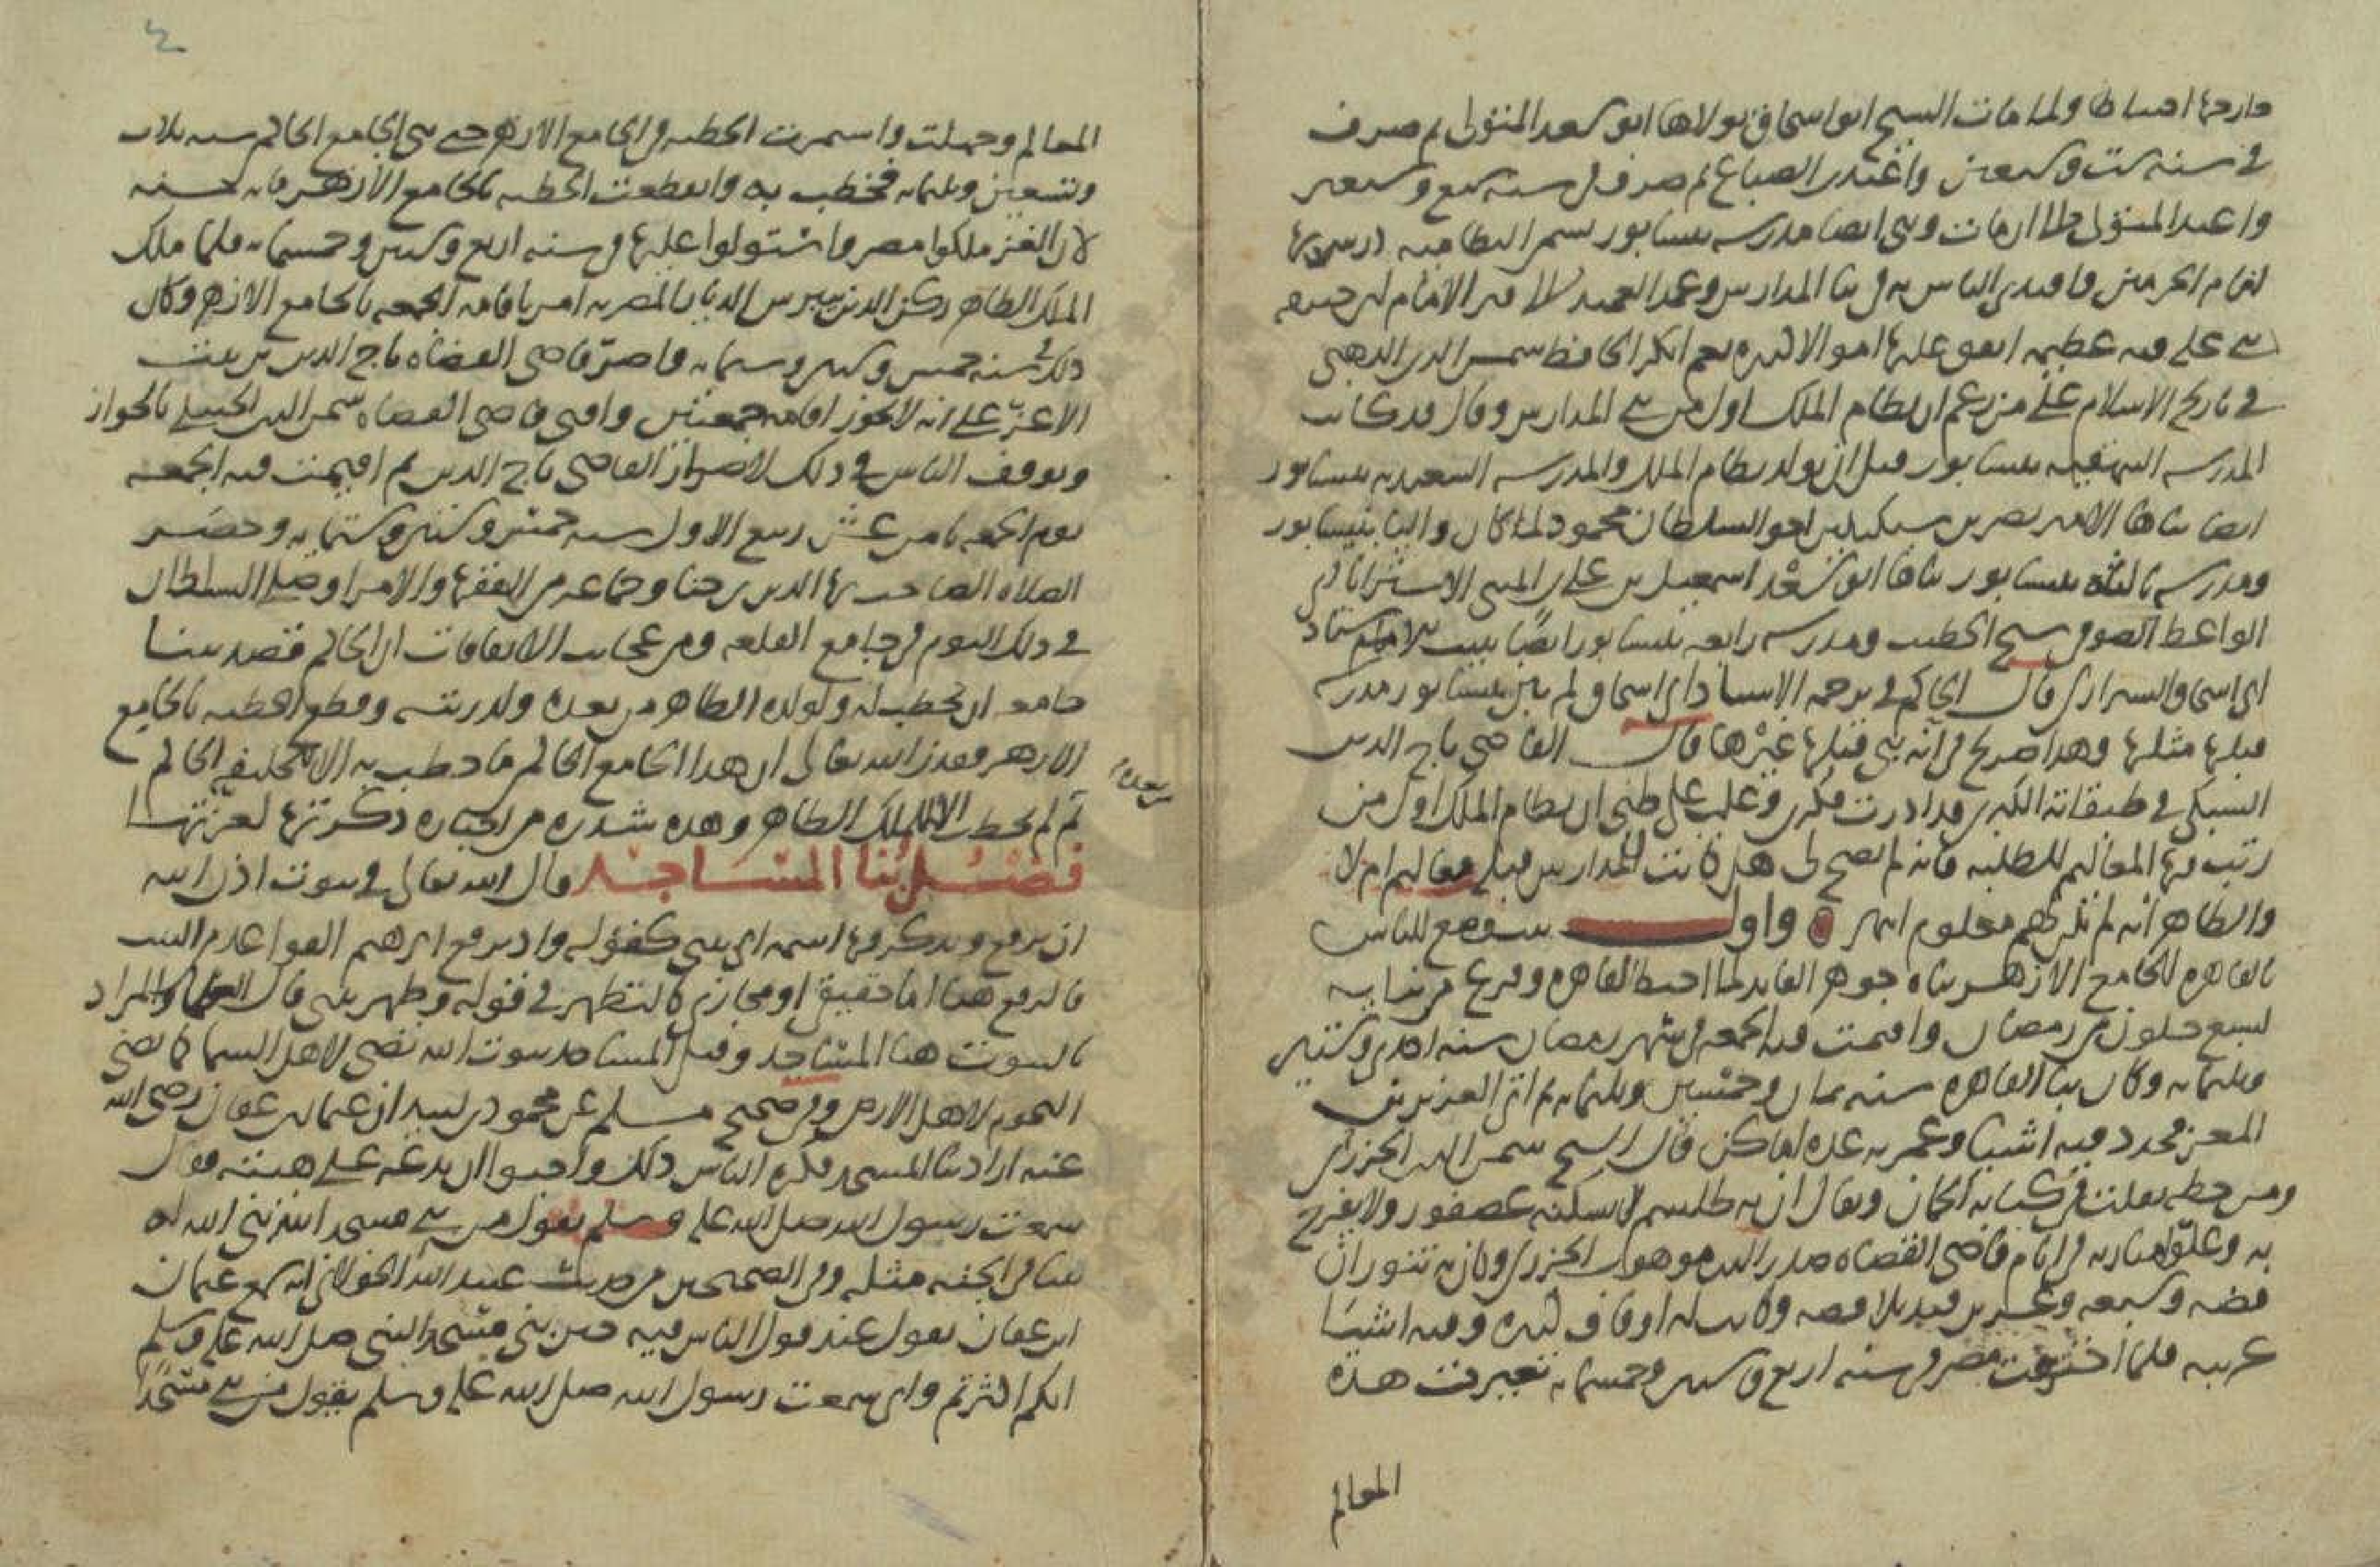 خارجها احتياطا ولما مات الشيخ ابو اسحاق تولاها ابو سعد المتولي ثم صرف
في سنة ست وسبعين واعيد ابن الصباغ ثم صرف في سنة سبع وسبعين
واعيد المتولي الى ان مات وبنى ايضا مدرسة بنيسابور تسمى النظامية درس بها
امام الحرمين واقتدى الناس به في بنا المدارس وعمد العميد الامام ابي حنيفة
بنى على قبه عظيمه انفق عليها اموالا كثيره نعم انكر الحافظ شمس الدين الذهبي
في تاريخ الاسلام على من زعم ان نظام الملك اول من بنى المدارس وقال قد كانت
المدرسه البيهقيه بنيسابور قبل ان يولد نظام الملك والمدرسه السعيديه بنيسابور
ايضا بناها الامير نصر بن سبكتكين اخو السلطان محمود لما كان واليا بنيسابور
ومدرسه ثالثه بنيسابور بناها ابو سعد اسمعيل بن علي بن المثنى الاستراباذي
الواعظ الصوفي شيخ الخطيب ومدرسه رابعه بنيسابور ايضا بنيت للاستاد
ابي اسحاق الاسفرايني قال الحاكم في ترجمه الاستاد ابي اسحاق لم يبن بنيسابور مدرسه
قبلها مثلها وهذا صريح في انه بنى قبلها غيرها قال القاضي تاج الدين
السبكي في طبقاته الكبرى قد ادرت فكري وغلب على ظني ان نظام الملك اول من
رتب فيها المعاليم للطلبه فانه لم يصح لي هل كانت للمدارس قبله معاليم ام لا
والظاهر انه لم يكن لهم معلوم انتهى واول بيت وضع للناس
بالقاهره الجامع الازهر بناه جوهر القايد لما اختط القاهره وفرغ من بنايه
لسبع خلون من رمضان واقيمت فيه الجمعه في شهر رمضان سنه احدى وستين
وثلثمايه وكان بنا القاهره سنه ثمان وخمسين وثلثمايه ثم ان العزيز بن
المعز جدد فيه اشيا وعمر به عده اماكن قال الشيخ شمس الدين الجزري
ومن خطه نقلت في كتابه الجمان ويقال ان به طلسم لا يسكنه عصفور ولا يفرخ
به وعلو مناربه في ايام قاضي القضاه صدر الدين موهوب الجزري وكان به تنوران
فضه وسبعه وعشرين قنديلا فضه وكانت له اوقاف كثيره وفيه اشيا
غريبه فلما احترقت مصر في سنه اربع وستين وخمسمايه تغيرت هذه
المعالم
٤
المعالم وحملت واستمرت الخطبه في الجامع الازهر حتى بنى الجامع الحاكم سنه ثلاث
وتسعين وثلثمايه فخطب به وانقطعت الخطبه بالجامع الازهر مايه سنه
لان الغز ملكوا مصر واستولوا عليها في سنه اربع وستين وخمسمايه فلما ملك
الملك الظاهر ركن الدين بيبرس الديار المصريه امر باقامه الجمعه بالجامع الازهر وكان
ذلك في سنه خمس وستين وستمايه واصر قاضي القضاه تاج الدين بن بنت
الاعز على انه لا يجوز اقامه جمعتين وافتى قاضي القضاه شمس الدين الحنبلي بالجواز
وتوقف الناس في ذلك لاصرار القاضي تاج الدين ثم اقيمت فيه الجمعه
يوم الجمعه ثامن عشر ربيع الاول سنه خمس وستين وستمايه وحضر
الصلاه الصاحب بها الدين بن حنا وجماعه من الفقها والامرا وصلى السلطان
في ذلك اليوم في جامع القلعه ومن عجايب الاتفاقات ان الحاكم قصد ببنا
جامعه ان يخطب له ولولده الظاهر من بعده ولذريته وقطع الخطبه بالجامع
الازهر فقدر الله تعالى ان هذا الجامع الحاكم ما خطب به الا لخليفه الحاكم
من بعده
ثم لم يخطب الا للملك الظاهر وهذه شذره من اخباره ذكرتها لغرابتها
فصل بنا المساجد قال الله تعالى في بيوت اذن الله
ان ترفع ويذكر فيها اسمه اي تبنى كقوله واذ يرفع ابرهيم القواعد من البيت
فالرفع هنا اما حقيقي او مجازي كالتطهير في قوله وطهر بيتي قال العلما والمراد
بالبيوت هنا المساجد وقيل المساجد بيوت الله تضي لاهل السما كما تضي
النجوم لاهل الارض وفي صحيح مسلم عن محمود بن لبيد ان عثمان بن عفان رضي الله
عنه اراد بنا المسجد فكره الناس ذلك واحبوا ان يدعه على هيئته فقال
سمعت رسول الله صلى الله عليه وسلم يقول من بنى مسجدا لله بنى الله له
بيتا في الجنه مثله وفي الصحيحين من حديث عبيد الله الخولاني انه سمع عثمان
ابن عفان يقول عند قول الناس فيه حين بنى مسجد النبي صلى الله عليه وسلم
انكم اكثرتم واني سمعت رسول الله صلى الله عليه وسلم يقول من بنى مسجدا